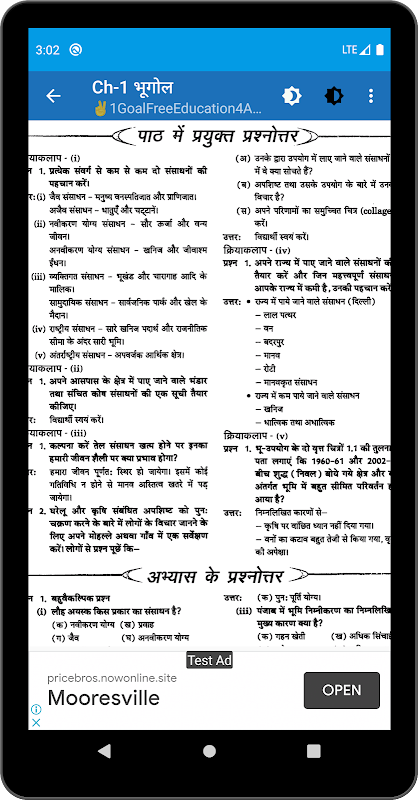 3:02
LTE
Ch-1 भूगोल
✌1GoalFreeEducation4A...
पाठ में प्रयुक्त प्रश्नोत्तर
याकलाप - (i)
न 1. प्रत्येक संवर्ग से कम से कम दो संसाधनों की
पहचान करें।
र: (i) जैव संसाधन – मनुष्य वनस्पतिजात और प्राणिजात।
अजैव संसाधन – धातुएँ और चट्टानें।
(ii) नवीकरण योग्य संसाधन – सौर ऊर्जा और वन्य
जीवन।
अनवीकरण योग्य संसाधन – खनिज और जीवाश्म
ईंधन।
(iii) व्यक्तिगत संसाधन – भूखंड और चारागाह आदि के
मालिक।
सामुदायिक संसाधन – सार्वजनिक पार्क और खेल के
मैदान।
(iv) राष्ट्रीय संसाधन – सारे खनिज पदार्थ और राजनीतिक
सीमा के अंदर सारी भूमि।
(v) अंतर्राष्ट्रीय संसाधन – अपवर्जक आर्थिक क्षेत्र।
याकलाप - (ii)
न 1. अपने आसपास के क्षेत्र में पाए जाने वाले भंडार
तथा संचित कोष संसाधनों की एक सूची तैयार
कीजिए।
र: विद्यार्थी स्वयं करें।
याकलाप - (iii)
न 1. कल्पना करें तेल संसाधन खत्म होने पर इनका
हमारी जीवन शैली पर क्या प्रभाव होगा?
र: हमारा जीवन पूर्णत: स्थिर हो जायेगा। इसमें कोई
गतिविधि न होने से मानव अस्तित्व खतरे में पड़
जायेगा।
न 2. घरेलू और कृषि संबंधित अपशिष्ट को पुन:
चक्रण करने के बारे में लोगों के विचार जानने के
लिए अपने मोहल्ले अथवा गाँव में एक सर्वेक्षण
करें। लोगों से प्रश्न पूछें कि–
(अ) उनके द्वारा उपयोग में लाए जाने वाले संसाधनों
में वे क्या सोचते हैं?
(ब) अपशिष्ट तथा उसके उपयोग के बारे में उन
विचार है?
(स) अपने परिणामों का समुच्चित चित्र (collage
करें।
उत्तर: विद्यार्थी स्वयं करें।
क्रियाकलाप - (iv)
प्रश्न 1. अपने राज्य में पाए जाने वाले संसाधनों की
तैयार करें और जिन महत्त्वपूर्ण संसाध
आपके राज्य में कमी है, उनकी पहचान करें
उत्तर: • राज्य में पाये जाने वाले संसाधन (दिल्ली)
– लाल पत्थर
– वन
– बदरपुर
– मानव
– रोटी
– मानवकृत संसाधन
• राज्य में कम पाये जाने वाले संसाधन
– खनिज
– धात्विक तथा अधात्विक
क्रियाकलाप - (v)
प्रश्न 1. भू-उपयोग के दो वृत्त चित्रों 1.1 की तुलना
पता लगाएं कि 1960-61 और 2002-
बीच शुद्ध (निवल) बोये गये क्षेत्र और
अंतर्गत भूमि में बहुत सीमित परिवर्तन
आया है?
उत्तर: निम्नलिखित कारणों से–
– कृषि पर वांछित ध्यान नहीं दिया गया।
– वनों का कटाव बहुत तेजी से किया गया,
की अपेक्षा।
अभ्यास के प्रश्नोत्तर
न 1. बहुवैकल्पिक प्रश्न
(i) लौह अयस्क किस प्रकार का संसाधन है?
(क) नवीकरण योग्य (ख) प्रवाह
(ग) जैव (घ) अनवीकरण योग्य
उत्तर: (क) पुन: पूर्ति योग्य।
(iii) पंजाब में भूमि निम्नीकरण का निम्नलिखि
मुख्य कारण क्या है?
(क) गहन खेती (ख) अधिक सिंचा
Test Ad
pricebros.nowonline.site
Mooresville
OPEN